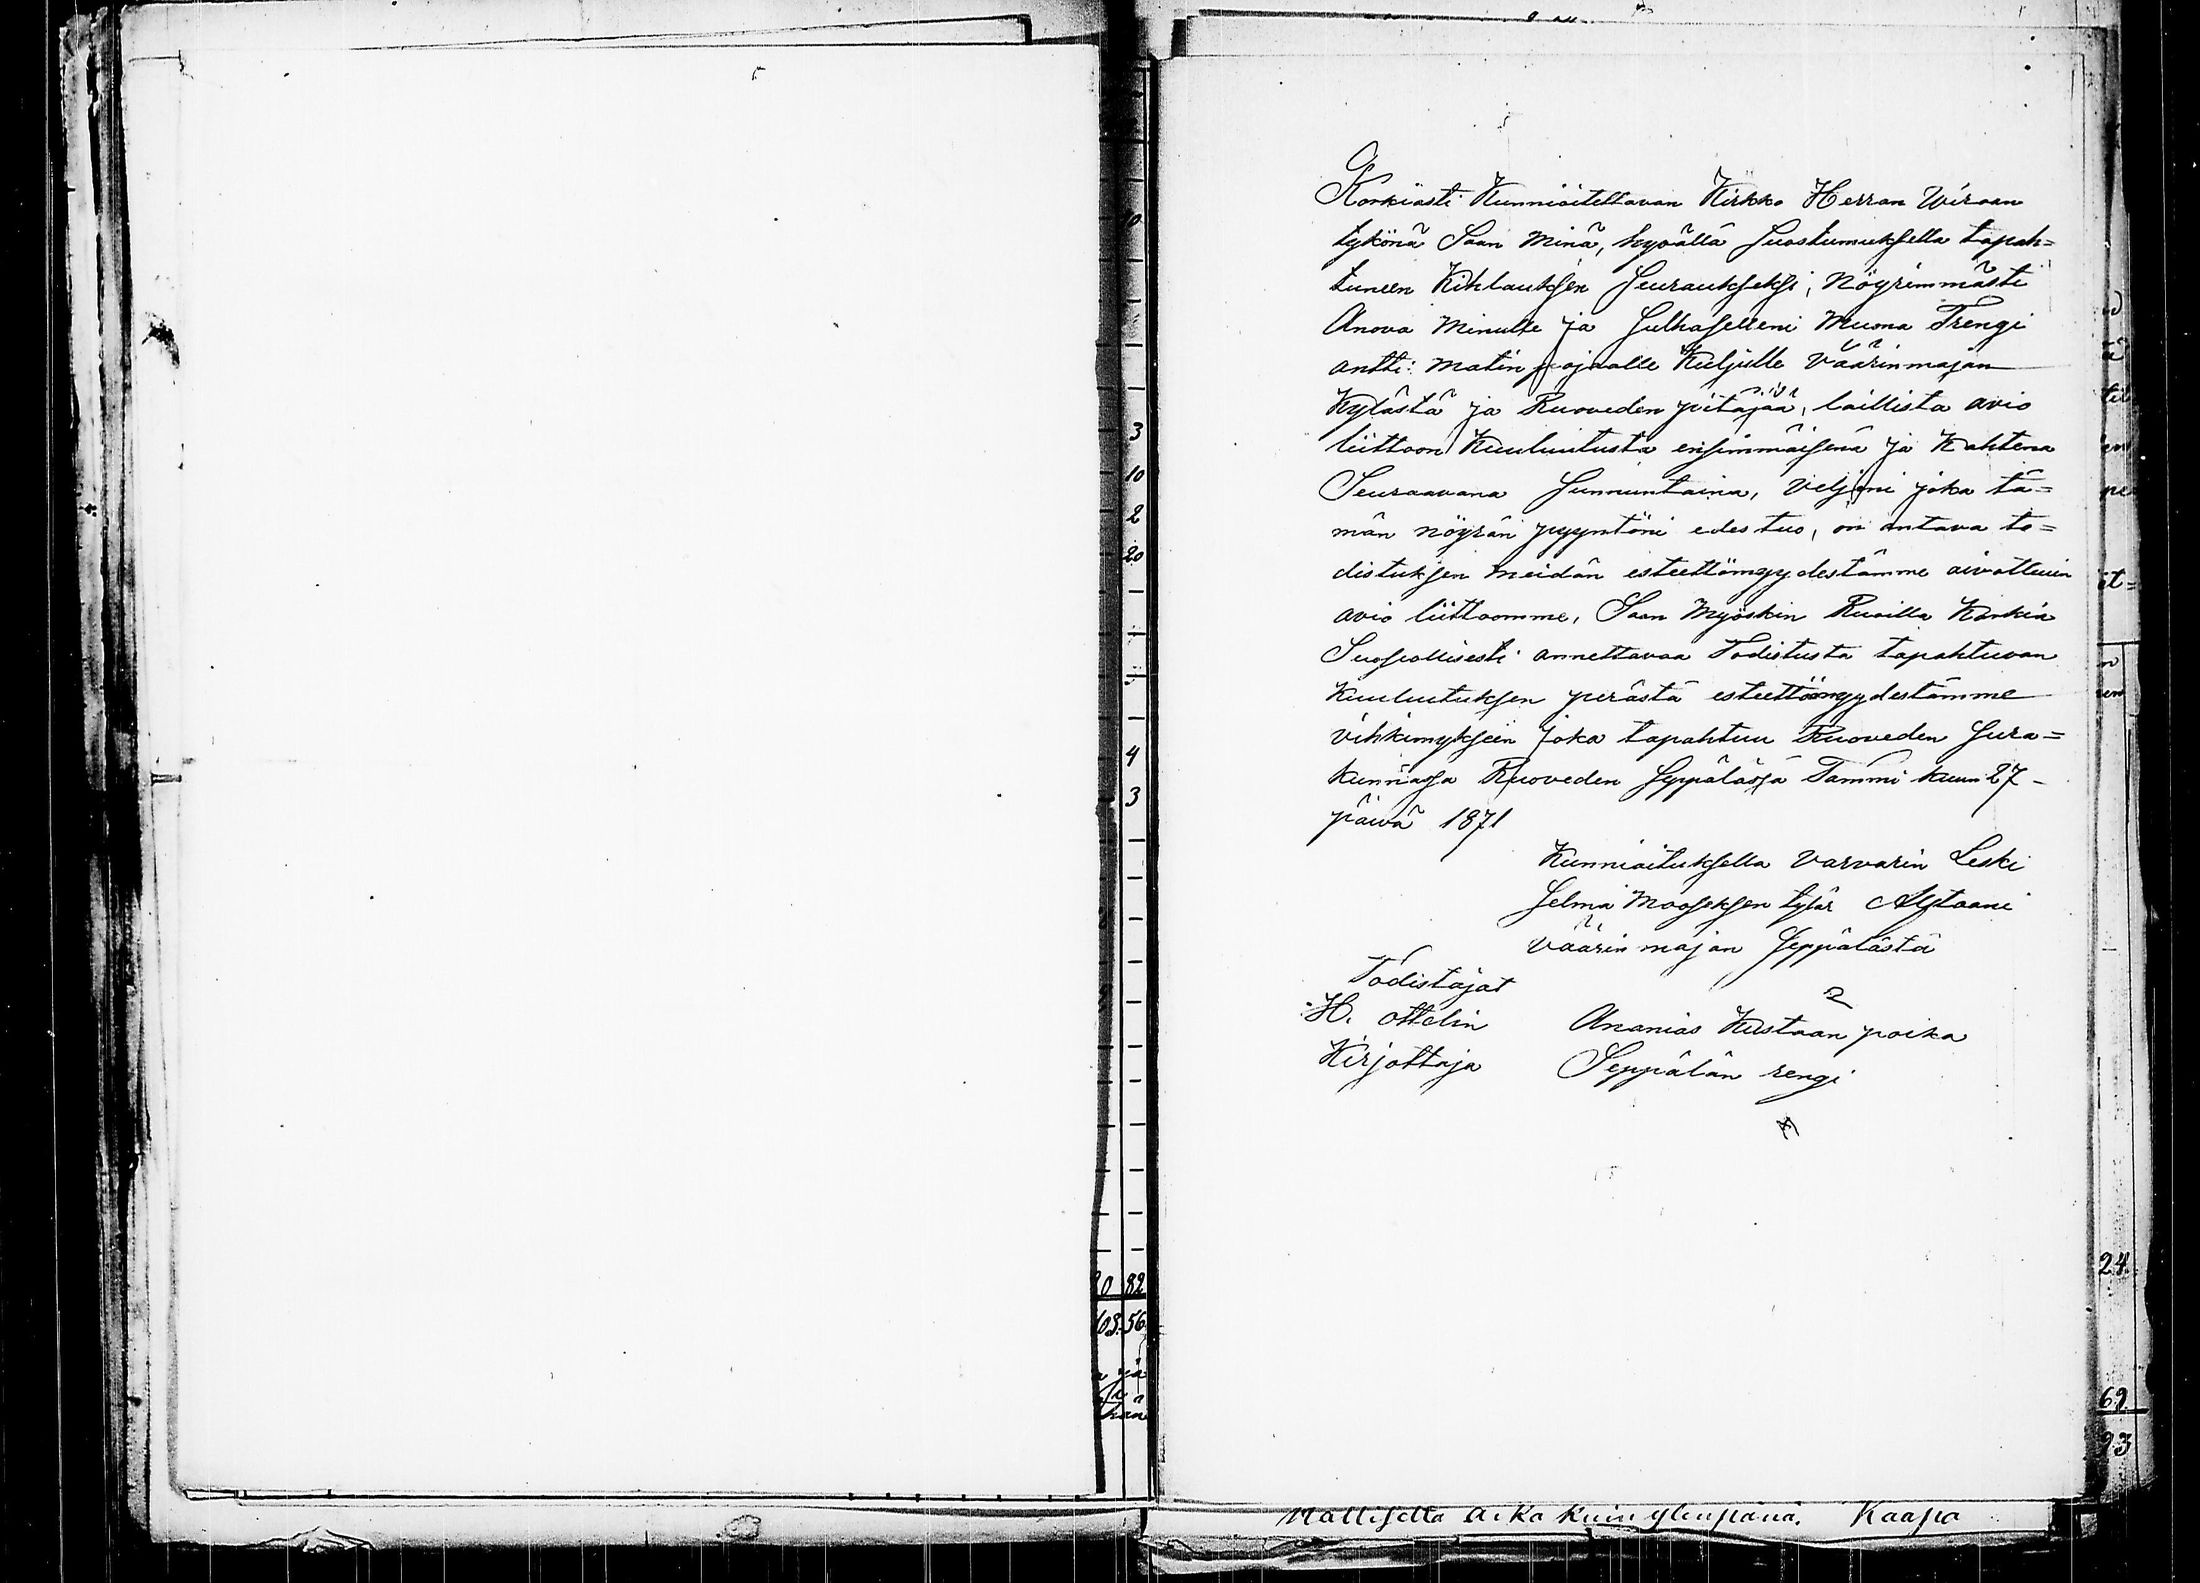 Korkiasti Kunnioitettavan Kirkko Herran Wiraan
tykönä Saan Minä, hyvällä Suostumuksella tapah=
tuneen Kihlauksen Seuraukseksi, Nöyrimmästi
Anova Minulle ja Sulhaselleni Muona Trengi
antti: Matin pojaalle Kuljulle Väärinmajan
Kylästä ja Ruoveden pitäjää, laillista avio
liittoon Kuuluutusta ensimmäisenä ja Kahtena
Seuraavana Sunnuntaina, Veljeni joka tä=
män nöyrän pyyntöni edes tuo, on antava to=
distuksen Meidän esteettömyydestämme aivottuun
avio liittoomme, Saan Myöskin Ruvilla Korkia
Suosiollisesti annettavaa Todistusta tapahtuvan
Kuulutuksen perästä esteettöömyydestämme
vihkimykseen joka tapahtuu Ruoveden Sura=
kunnassa Ruoveden Seppälässä Tammi kuun 27
päivä 1871
Kunnioituksella Varvarin Leski
Selma Mooseksen tytär
Väärin majan Seppälästä
Todistajat
H. ottelin Ananias Kustaan poika
Kirjottaja Seppälän rengi
10
3
10
2
20
4
3
0 82
56
ja
24
69
93
aika kuin Kaapo